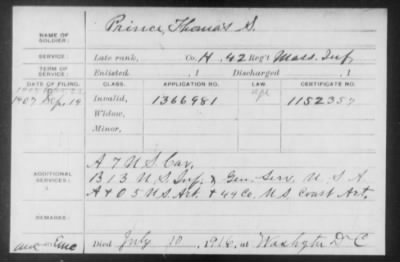 NAME OF SOLDIER: Prince, Thomas S.
SERVICE: Late rank, Co. H, 42 Reg't Mass. Inf.
TERM OF SERVICE: Enlisted , 1 Discharged , 1
DATE OF FILING. CLASS. APPLICATION NO. LAW. CERTIFICATE NO.
1907 Sep. 14 Invalid, 1366981 1152357
Widow,
Minor,
ADDITIONAL SERVICES: A 7 U.S. Cav.
B 13 U.S. Inf. & Gen. Serv. U.S.A
A & O 5 U.S. Art. & 44 Co. U.S. Coast Art.
REMARKS:
Died July 10, 1916, at Washgtn D C